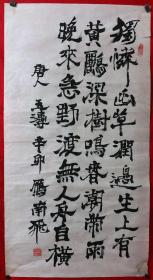 獨憐幽草澗邊生上有
黃鸝深樹鳴春潮帶雨
晚來急野渡無人舟自橫
唐人
辛卯 南飛